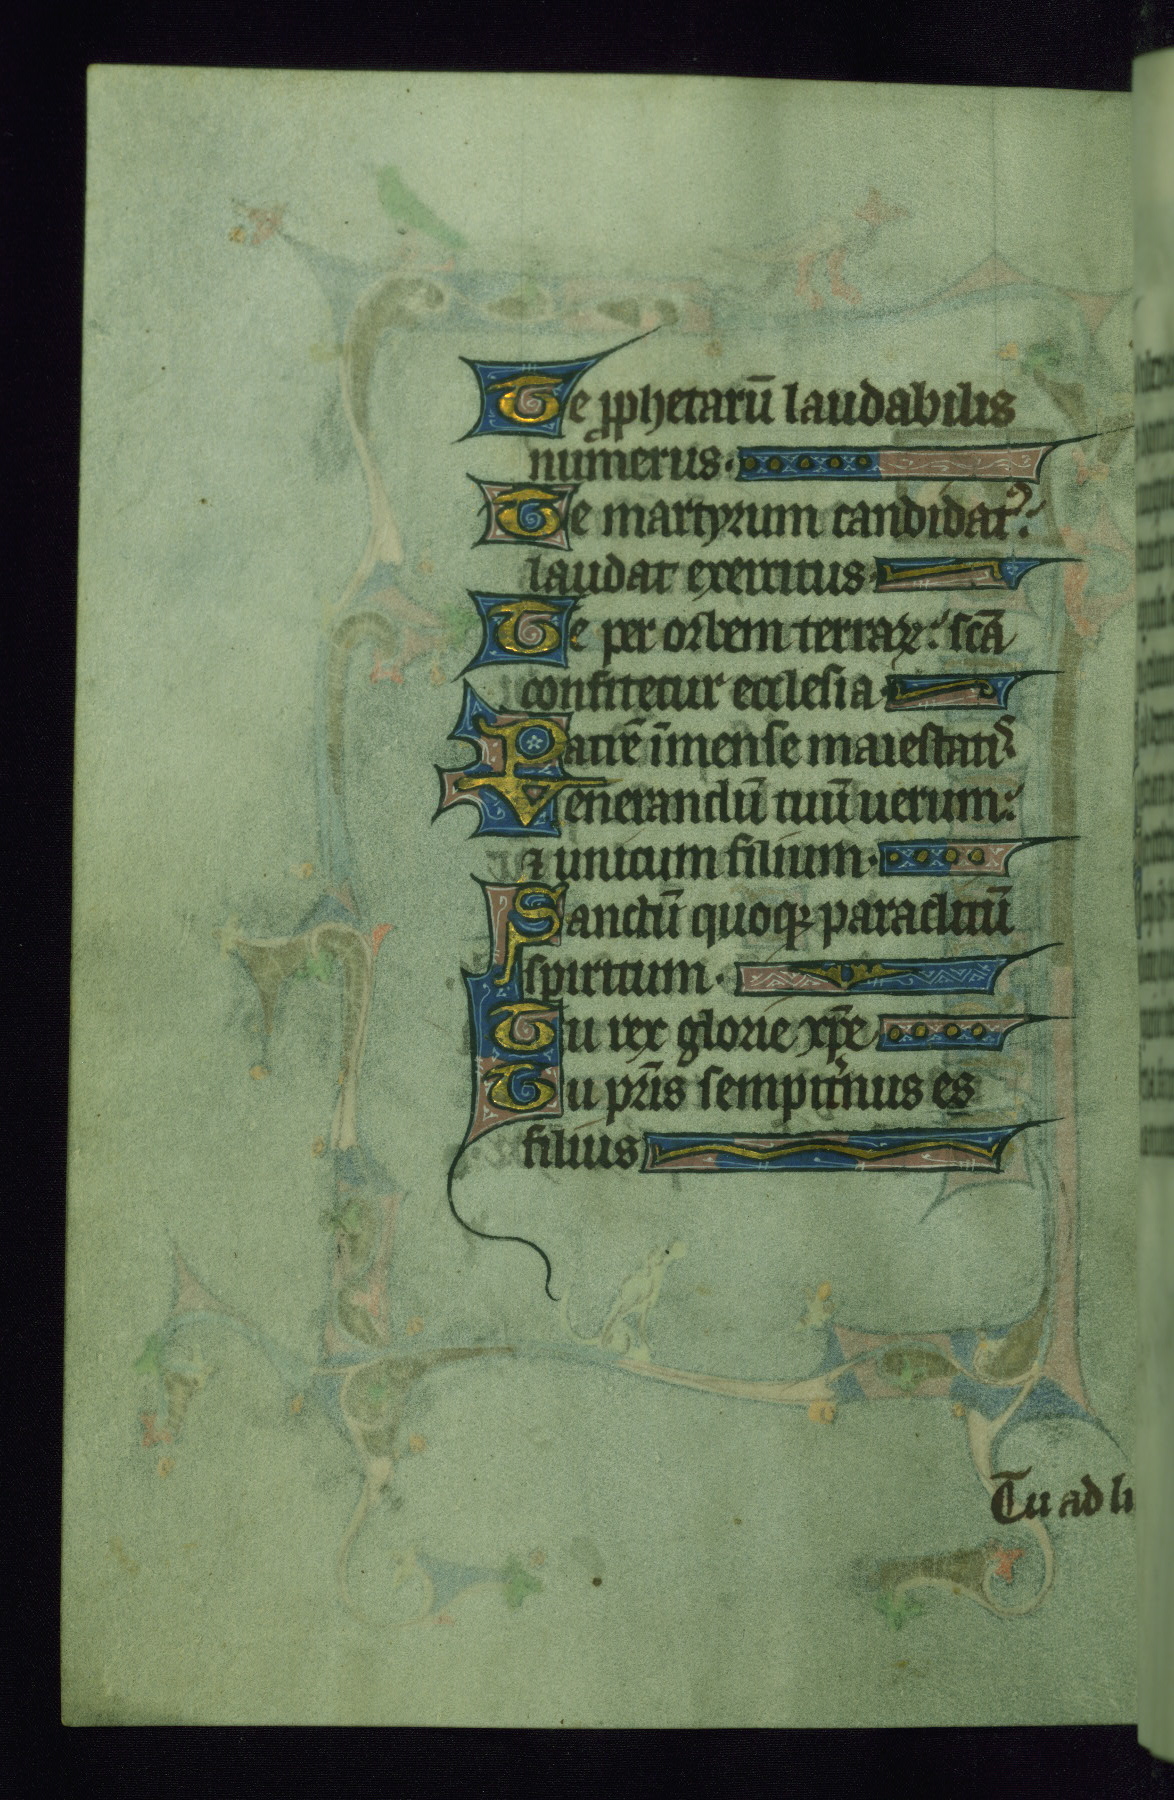 Te ꝓphetaru̅ laudabilis
numerus·
Te martyrum candidat᷒:
laudat exercitus
Te per orbem terraꝝ: sca̅
confitetur ecclesia·
Patre̅ i̅mense maiestatis
Venerandu̅ tuu̅ uerum:
⁊ unicum filium·
Sanctu̅ quoqꝫ paraclitu̅
spiritum·
Tu rex glorie xp̅e
Tu pr̅is sempit̕nus es
filius
Tu ad li